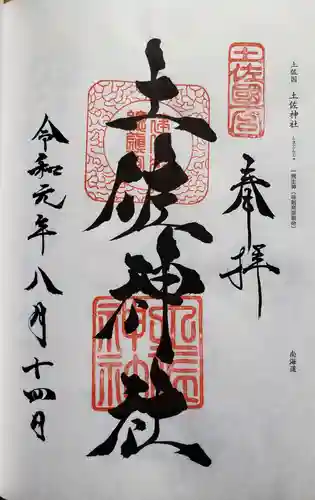 土佐國 土佐神社
南海道
土佐國一宮
奉拝
土佐神社
令和元年八月十四日